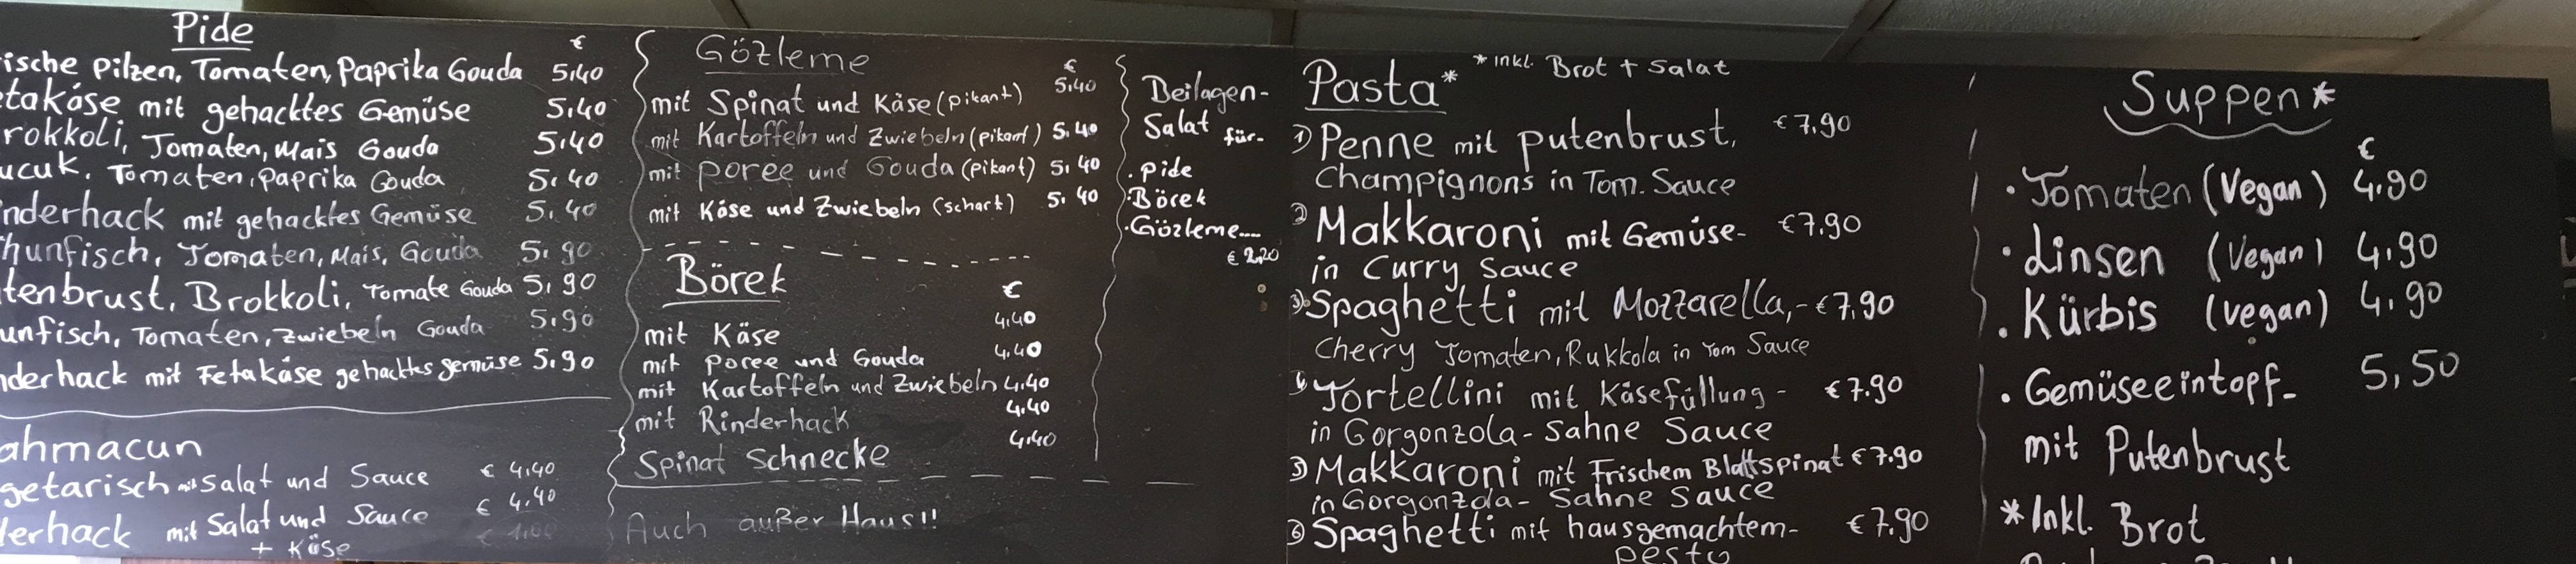 Pide
€
ische Pilzen, Tomaten, Paprika Gouda 5,40
takäse mit gehacktes Gemüse 5,40
rokkoli, Tomaten, Mais Gouda 5,40
ucuk, Tomaten, Paprika Gouda 5,40
nderhack mit gehacktes Gemüse 5,40
hunfisch, Tomaten, Mais, Gouda 5,90
tenbrust, Brokkoli, Tomate Gouda 5,90
unfisch, Tomaten, Zwiebeln Gouda 5,90
nderhack mit Fetakäse gehacktes gemüse 5,90
ahmacun
getarisch mit Salat und Sauce € 4,40
derhack mit Salat und Sauce € 4,40
+ Käse
Gözleme
€
mit Spinat und Käse (pikant) 5,40
mit Kartoffeln und Zwiebeln (pikant) 5,40
mit Poree und Gouda (pikant) 5,40
mit Käse und Zwiebeln (scharf) 5,40
Börek
€
mit Käse 4,40
mit Poree und Gouda 4,40
mit Kartoffeln und Zwiebeln 4,40
mit Rinderhack 4,40
Spinat Schnecke 4,40
Auch außer Haus!!
Beilagen-
Salat für-
. Pide
. Börek
. Gözleme....
€ 2,20
Pasta* *inkl. Brot + Salat
1) Penne mit Putenbrust, €7,90
Champignons in Tom. Sauce
2) Makkaroni mit Gemüse- €7,90
in Curry Sauce
3) Spaghetti mit Mozzarella,- €7,90
Cherry Tomaten, Rukkola in Tom Sauce
4) Tortellini mit Käsefüllung - €7,90
in Gorgonzola-Sahne Sauce
5) Makkaroni mit Frischem Blattspinat €7,90
in Gorgonzola-Sahne Sauce
6) Spaghetti mit hausgemachtem- €7,90
pesto
Suppen*
€
. Tomaten (Vegan) 4,90
. Linsen (Vegan) 4,90
. Kürbis (vegan) 4,90
. Gemüseeintopf- 5,50
mit Putenbrust
*Inkl. Brot